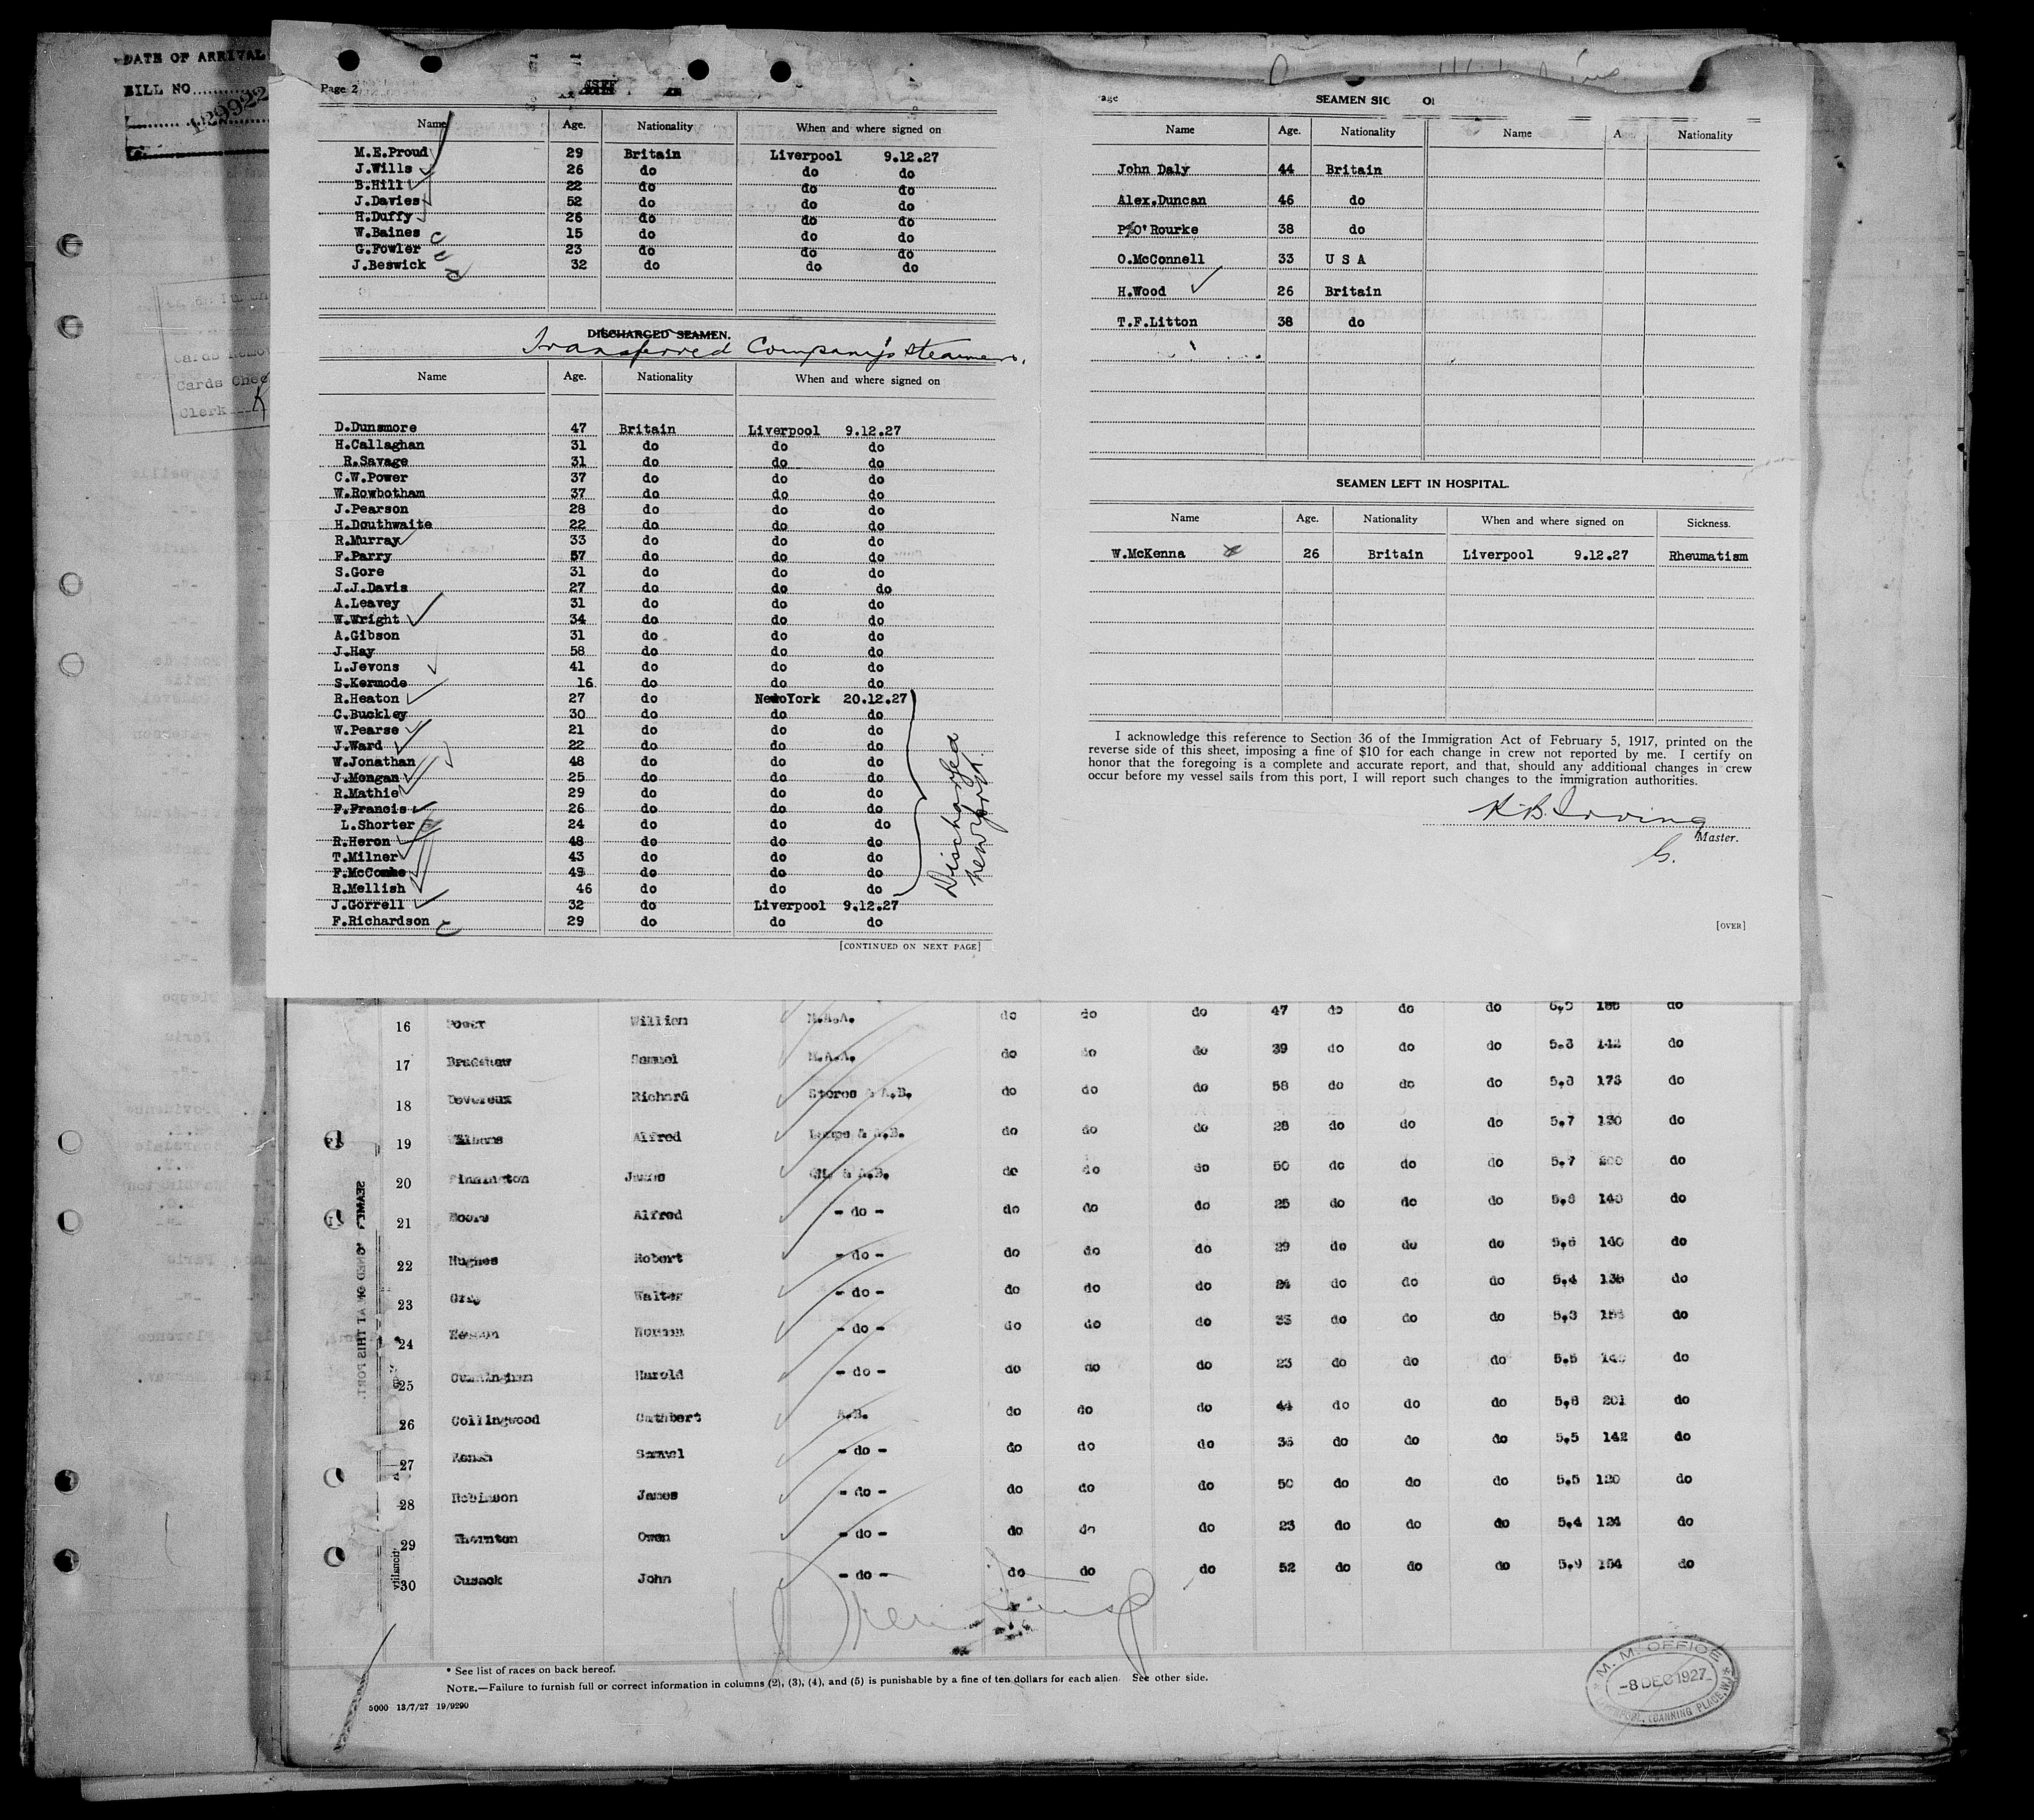 DATE OF ARRIVAL
BILL NO.
129922
Cards Chec
Clerk
Page 2
Name Age. Nationality When and where signed on
M.E.Proud 29 Britain Liverpool 9.12.27
J.Wills 26 do do do
B.Hill 22 do do do
J.Davies 52 do do do
H.Duffy 26 do do do
W.Baines 15 do do do
G.Fowler 23 do do do
J.Beswick 32 do do do
DISCHARGED SEAMEN.
Transferred Company's Steamers.
Name Age. Nationality When and where signed on
D.Dunsmore 47 Britain Liverpool 9.12.27
H.Callaghan 31 do do do
R.Savage 31 do do do
C.W.Power 37 do do do
W.Rowbotham 37 do do do
J.Pearson 28 do do do
H.Douthwaite 22 do do do
R.Murray 33 do do do
F.Parry 57 do do do
S.Gore 31 do do do
J.J.Davis 27 do do do
A.Leavey 31 do do do
W.Wright 34 do do do
A.Gibson 31 do do do
J.Hay 58 do do do
L.Jevons 41 do do do
S.Kermode 16 do do do
R.Heaton 27 do New York 20.12.27
C.Buckley 30 do do do
W.Pearse 21 do do do
J.Ward 22 do do do
W.Jonathan 48 do do do
J.Mongan 25 do do do
R.Mathie 29 do do do
F.Francis 26 do do do
L.Shorter 24 do do do
R.Heron 48 do do do
T.Milner 43 do do do
F.McCombe 49 do do do
R.Mellish 46 do do do
J.Gorrell 32 do Liverpool 9.12.27
F.Richardson 29 do do do
Discharged
New York
[CONTINUED ON NEXT PAGE]
SEAMEN SIG
Name Age. Nationality Name Nationality
John Daly 44 Britain
Alex.Duncan 46 do
P O'Rourke 38 do
O.McConnell 33 U S A
H.Wood 26 Britain
T.F.Litton 38 do
SEAMEN LEFT IN HOSPITAL.
Name Age. Nationality When and where signed on Sickness.
W.McKenna 26 Britain Liverpool 9.12.27 Rheumatism
I acknowledge this reference to Section 36 of the Immigration Act of February 5, 1917, printed on the
reverse side of this sheet, imposing a fine of $10 for each change in crew not reported by me. I certify on
honor that the foregoing is a complete and accurate report, and that, should any additional changes in crew
occur before my vessel sails from this port, I will report such changes to the immigration authorities.
K.B.Irving
Master.
[OVER]
16 Power William M.A.A. do do do 47 do do do do
17 Bradshaw Samuel M.A.A. do do do 39 do do do 5.3 142 do
18 Devereux Richard Stores & A.B. do do do 58 do do do 5.8 173 do
19 Williams Alfred Lamps & A.B. do do do 28 do do do 5.7 130 do
20 Pinnington James & A.B. do do do 50 do do do 5.7 200 do
21 Moore Alfred - do - do do do 25 do do do 5.6 140 do
22 Hughes Robert - do - do do do 29 do do do 5.6 140 do
23 Gray Walter - do - do do do 24 do do do 5.4 136 do
24 Norman - do - do do do 35 do do do 5.3 do
25 Cunningham Harold - do - do do do 23 do do do 5.5 do
26 Collingwood Cuthbert A.B. do do do 44 do do do 5.8 201 do
27 Samuel - do - do do do 36 do do do 5.5 142 do
28 Robinson James - do - do do do 50 do do do 5.5 120 do
29 Thornton Owen - do - do do do 23 do do do 5.4 124 do
30 Cusack John - do - do do do 52 do do do 5.9 154 do
* See list of races on back hereof.
NOTE.—Failure to furnish full or correct information in columns (2), (3), (4), and (5) is punishable by a fine of ten dollars for each alien. See other side.
5000 13/7/27 19/9290
M. M. OFFICE
-8 DEC 1927
LIVERPOOL, (CANNING PLACE, W.)